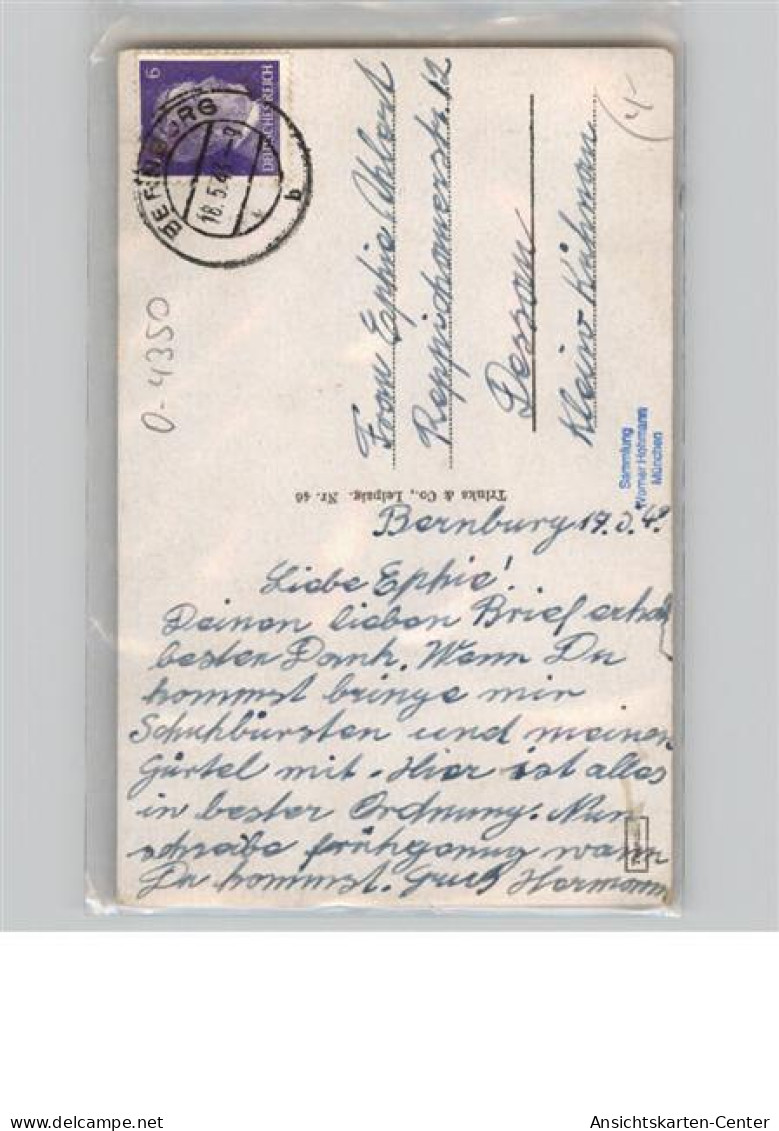 6
DEUTSCHES REICH
BERNBURG
18.5.4
b
4-
0-4350
Frau Ephie Ahlert
Reppichauerstr. 12
Dessau
Klein-Kühnau
Sammlung
Werner Hohmann
München
Trinks & Co., Leipzig. Nr. 46
Bernburg 17.5.42
Liebe Ephie!
Deinen lieben Brief erhal
besten Dank. Wenn Du
kommst bringe mir
Schuhbürsten und meinen
Gürtel mit. Hier ist alles
in bester Ordnung. Nun
schreibe früh genug wann
Du kommst. Gruß Hermann
www.delcampe.net
Ansichtskarten-Center